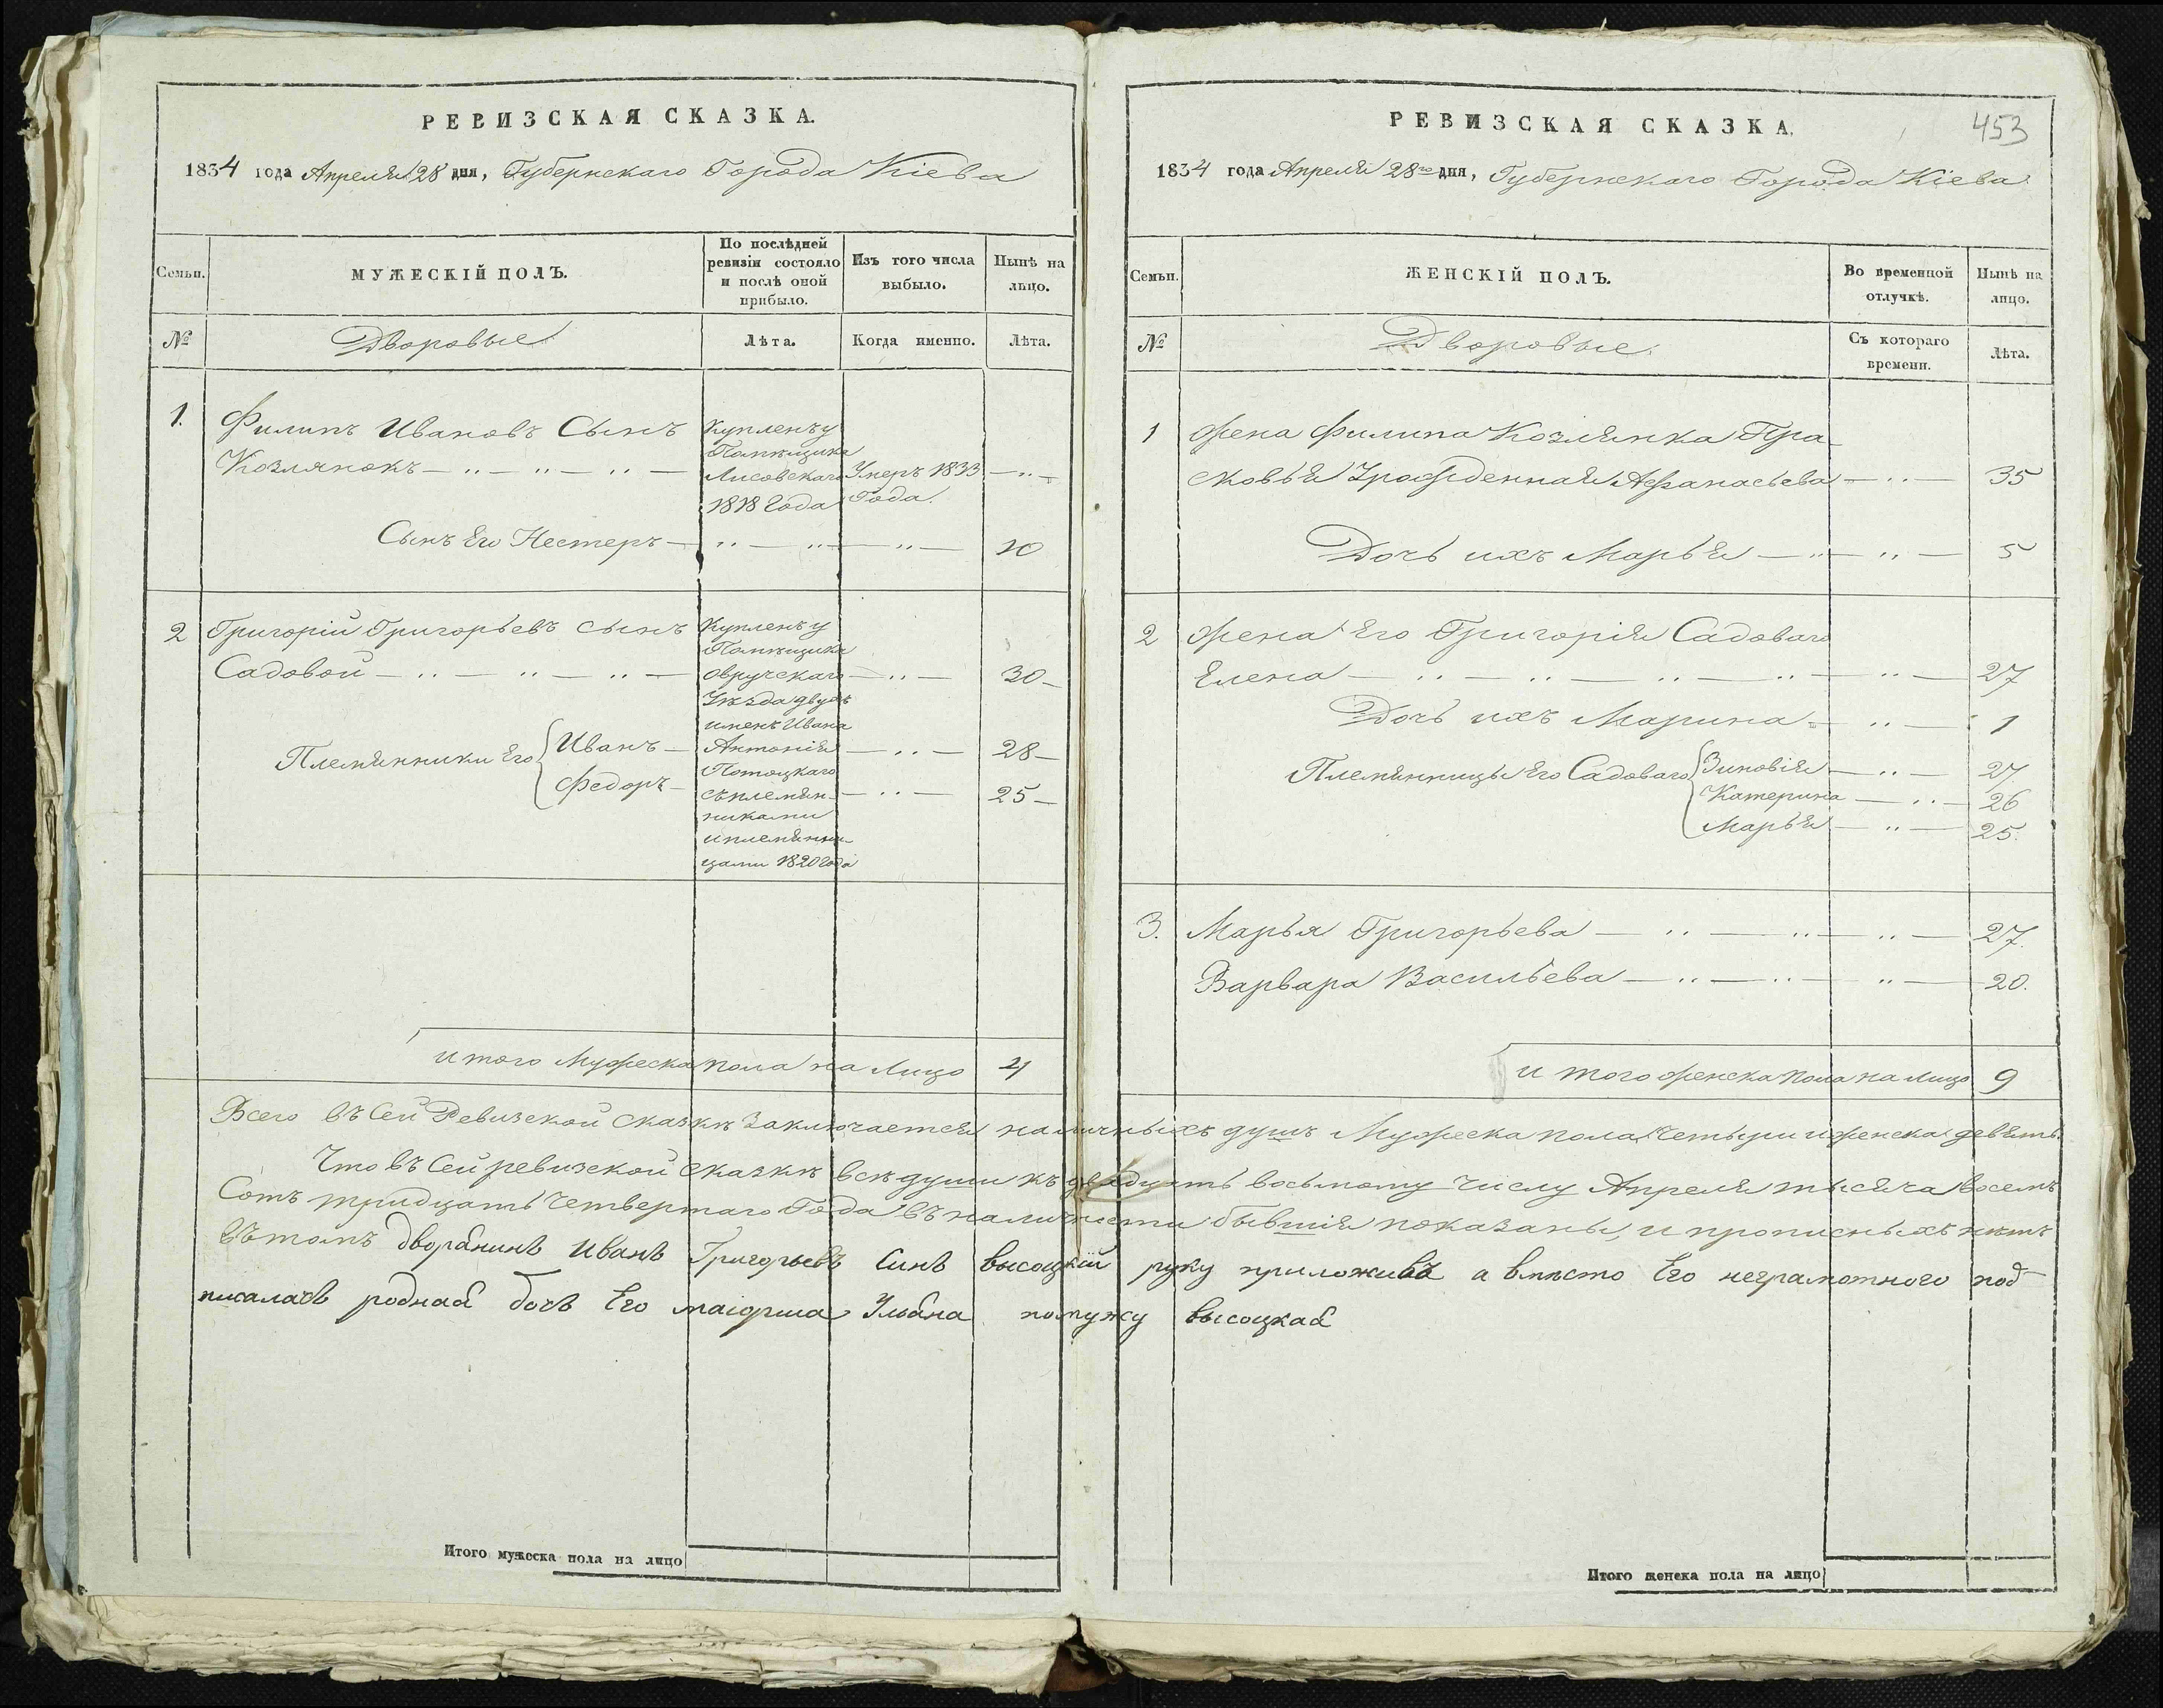 РЕВИЗСКАЯ СКАЗКА.
1834 года Апреля 28 дня, Губернскаго Города Кіева
Семьи.
МУЖЕСКІЙ ПОЛЪ.
По послѣдней ревизіи состояло и послѣ оной прибыло.
Изъ того числа выбыло.
Нынѣ на лицо.
№
Дворовые
Лѣта.
Когда именно.
Лѣта.
1.
Филипъ Ивановъ Сынъ
Козлянокъ — „ — „ — „ —
Купленъ у
Помѣщика
Лисовскаго
1818 Года
Умеръ 1833
Года.
— „ —
Сынъ Его Нестеръ — „ — „ — „ — 10
2
Григорій Григорьевъ сынъ
Садовой — „ — „ — „ —
Купленъ у
Помѣщика
Овручскаго
Уѣзда двухъ
именъ Ивана
Антонія
Потоцкаго
съ племян-
никами
и племянни-
цами 1820 Года
— „ — 30 —
Племянники Его { Иванъ — — „ — 28 —
Федоръ — — „ — 25 —
итого Мужеска пола на Лицо 4
РЕВИЗСКАЯ СКАЗКА.
453
1834 года Апреля 28го дня, Губернскаго Города Кіева
Семьи.
ЖЕНСКІЙ ПОЛЪ.
Во временной отлучкѣ.
Нынѣ на лицо.
№
Дворовые.
Съ котораго времени.
Лѣта.
1
Жена Филипа Козлянка Пра-
сковья Урожденная Афанасьева — „ — 35
Дочь ихъ Марья — „ — „ — 5
2
Жена Его Григорія Садоваго
Елена — „ — „ — „ — „ — „ — 27
Дочь ихъ Марина — „ — 1
Племянницы Его Садоваго { Зиновія — „ — 27
Катерина — „ — 26
Марья — „ — 25.
3.
Марья Григорьева — „ — „ — „ — 27.
Варвара Васильева — „ — „ — „ — 20.
итого женска пола на лицо 9
Всего въ Сей Ревизской сказкѣ заключается наличныхъ душъ Мужеска пола четыри и женска девять.
Что въ Сей ревизской сказкѣ всѣ души къ двадцать восьмому числу Апреля тысяча восемъ
Сотъ тридцать четвертаго Года въ наличности бывшія показаны, и прописныхъ нѣтъ
вътомъ дворанинъ Иванъ Григорьевъ Синъ высоцкій руку приложивъ а вмѣсто Его неграмотного под-
писалась родная дочъ Его маіорша Уляна помужу высоцкая
Итого мужеска пола на лицо
Итого женска пола на лицо